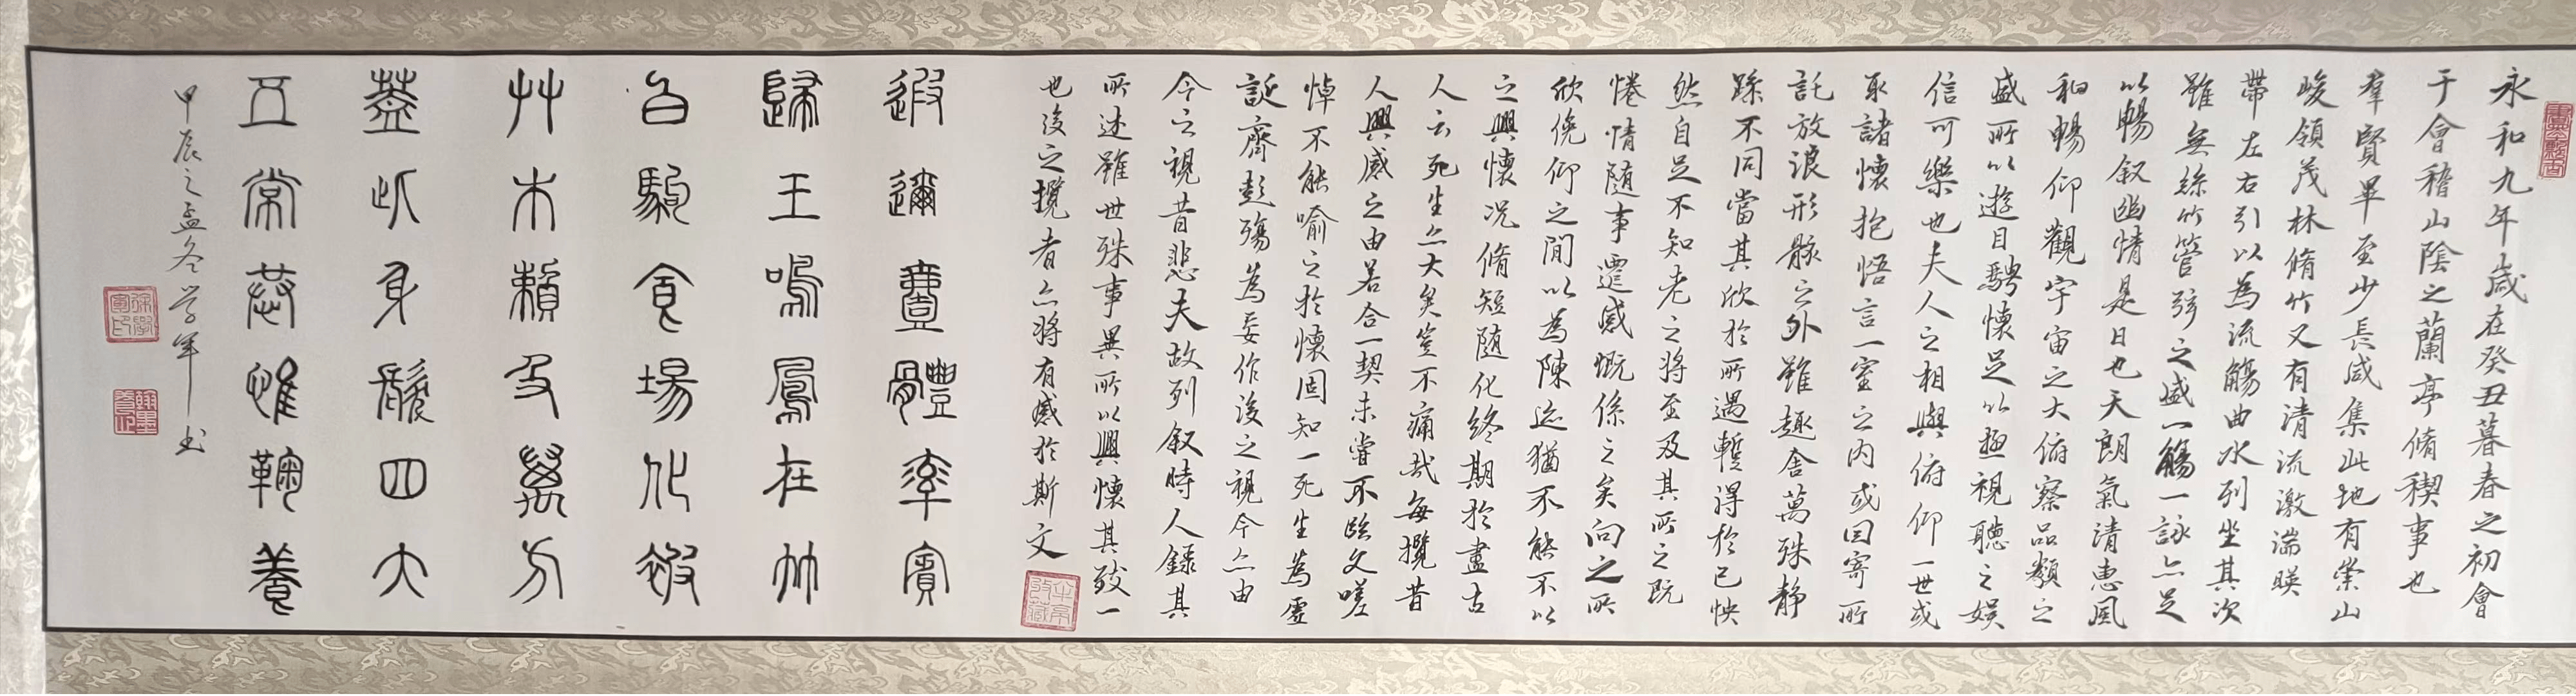 永和九年歲在癸丑暮春之初會
于會稽山陰之蘭亭脩稧事也
羣賢畢至少長咸集此地有崇山
峻領茂林脩竹又有清流激湍暎
帶左右引以為流觴曲水列坐其次
雖無絲竹管弦之盛一觴一詠亦足
以暢叙幽情是日也天朗氣清惠風
和暢仰觀宇宙之大俯察品類之
盛所以遊目騁懷足以極視聽之娛
信可樂也夫人之相與俯仰一世或
取諸懷抱悟言一室之內或因寄所
託放浪形骸之外雖趣舍萬殊靜
躁不同當其欣於所遇暫得於己怏
然自足不知老之將至及其所之既
惓情隨事遷感慨係之矣向之所
欣俛仰之間以為陳迹猶不能不以
之興懷況脩短隨化終期於盡古
人云死生亦大矣豈不痛哉每攬昔
人興感之由若合一契未嘗不臨文嗟
悼不能喻之於懷固知一死生為虛
誕齊彭殤為妄作後之視今亦由
今之視昔悲夫故列叙時人錄其
所述雖世殊事異所以興懷其致一
也後之攬者亦將有感於斯文
遐邇壹體率賓
歸王鳴鳳在竹
白駒食場化被
草木賴及萬方
蓋此身髮四大
五常恭惟鞠養
甲辰之孟冬學軍書